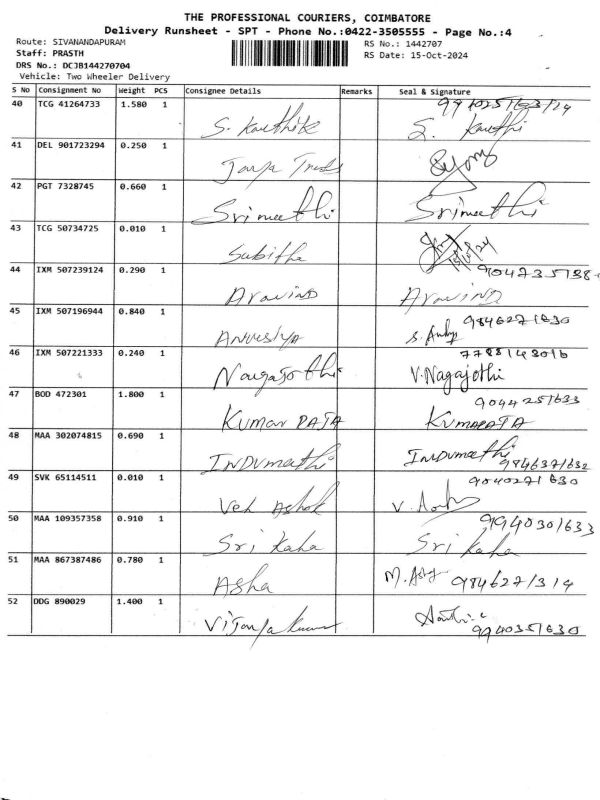 THE PROFESSIONAL COURIERS, COIMBATORE
Delivery Runsheet - SPT - Phone No.:0422-3505555 - Page No.:4
Route: SIVANANDAPURAM RS No.: 1442707
Staff: PRASTH RS Date: 15-Oct-2024
DRS No.: DCJB144270704
Vehicle: Two Wheeler Delivery
S No Consignment No Weight PCS Consignee Details Remarks Seal & Signature
40 TCG 41264733 1.580 1 S. Karthik S. Karthi
41 DEL 901723294 0.250 1
42 PGT 7328745 0.660 1 Srimeethi Srimeethi
43 TCG 50734725 0.010 1 Subitha 15/10/24
44 IXM 507239124 0.290 1 Aravind Aravind
45 IXM 507196944 0.840 1 Anusiya 9846271630
46 IXM 507221333 0.240 1 V.Nagajothi 7788148016
47 BOD 472301 1.800 1 Kumar RAJA 9044251633
48 MAA 302074815 0.690 1 INDUmathi INDUmathi 9846371632
49 SVK 65114511 0.010 1 Vel Ashok 9040271630
50 MAA 109357358 0.910 1 Sri kaha Sri kaha 9940301633
51 MAA 867387486 0.780 1 Asha M. Asha 9846271314
52 DDG 890029 1.400 1 Vijayakumar 9940351630